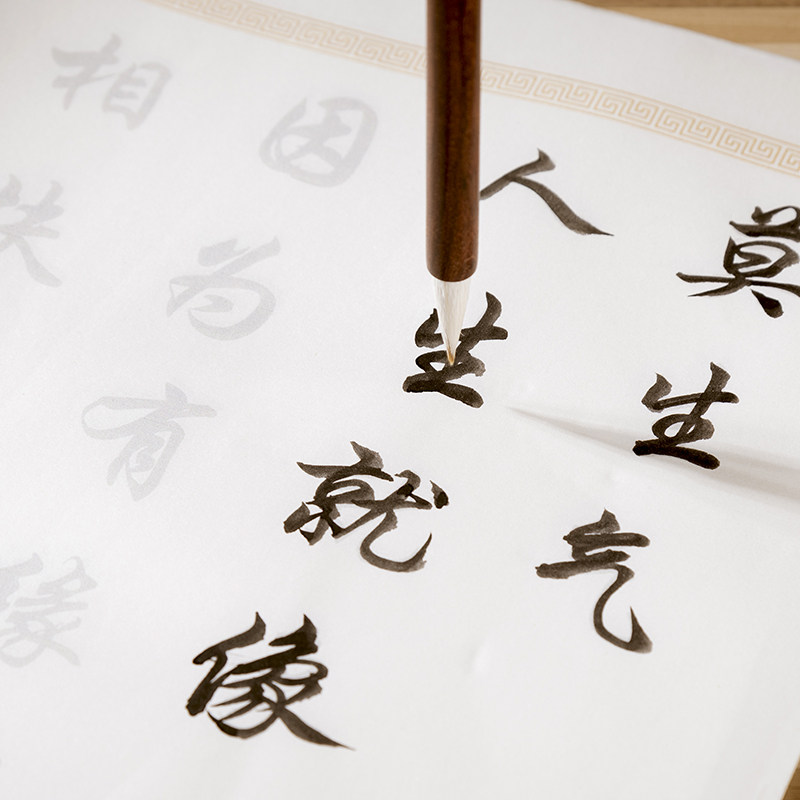 莫生气
人生就像
因为有缘
相